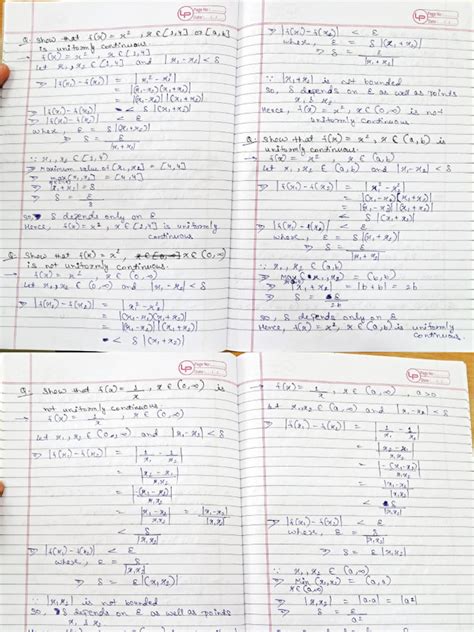 Q. Show that f(x) = x², x ∈ [1,4] or [a,b]
is uniformly continuous
→ f(x) = x², x ∈ [1,4]
Let x₁, x₂ ∈ [1,4] and |x₁-x₂| < δ
⇒ |f(x₁)-f(x₂)| = |x₁²-x₂²|
= |(x₁-x₂)(x₁+x₂)|
= |x₁-x₂| |(x₁+x₂)|
< δ |(x₁+x₂)|
⇒ |f(x₁)-f(x₂)| < ε
where, ε = δ |(x₁+x₂)|
⇒ δ = ε/|x₁+x₂|
∵ x₁, x₂ ∈ [1,4]
⇒ Maximum value of [x₁,x₂] = [4,4]
⇒ max[x₁,x₂] = [4,4]
⇒ |x₁+x₂| = 8
⇒ δ = ε/8
so, δ depends only on ε
Hence, f(x) = x², x ∈ [1,4] is uniformly
continuous
Q. Show that f(x) = x², x ∈ (0,∞)
is not uniformly continuous.
→ f(x) = x², x ∈ (0,∞)
Let x₁, x₂ ∈ (0,∞) and |x₁-x₂| < δ
⇒ |f(x₁)-f(x₂)| = |x₁²-x₂²|
= |(x₁-x₂)(x₁+x₂)|
= |x₁-x₂| |(x₁+x₂)|
< δ |(x₁+x₂)|
⇒ |f(x₁)-f(x₂)| < ε
where, ε = δ |(x₁+x₂)|
⇒ δ = ε/|x₁+x₂|
∵ |x₁+x₂| is not bounded
so, δ depends on ε as well as points
x₁ & x₂
Hence, f(x) = x², x ∈ (0,∞) is not
uniformly continuous
Q. Show that f(x) = x², x ∈ (a,b) is
uniformly continuous.
→ f(x) = x², x ∈ (a,b)
Let x₁, x₂ ∈ (a,b) and |x₁-x₂| < δ
⇒ |f(x₁)-f(x₂)| = |x₁²-x₂²|
= |(x₁-x₂)(x₁+x₂)|
= |x₁-x₂| |(x₁+x₂)|
< δ |(x₁+x₂)|
⇒ |f(x₁)-f(x₂)| < ε
where, ε = δ |x₁+x₂|
⇒ δ = ε/|x₁+x₂|
∵ x₁, x₂ ∈ (a,b)
⇒ Max(x₁,x₂) = (b,b)
⇒ |x₁+x₂| = |b+b| = 2b
⇒ δ = ε/2b
so, δ depends only on ε
Hence, f(x) = x², x ∈ (a,b) is uniformly
continuous
Q. Show that f(x) = 1/x, x ∈ (0,∞) is
not uniformly continuous.
→ f(x) = 1/x, x ∈ (0,∞)
Let x₁, x₂ ∈ (0,∞) and |x₁-x₂| < δ
⇒ |f(x₁)-f(x₂)| = |1/x₁ - 1/x₂|
= |(x₂-x₁)/x₁x₂|
= |-(x₁-x₂)/x₁x₂|
= |x₁-x₂|/|x₁x₂| = |x₁-x₂|/|x₁x₂|
< δ/|x₁x₂|
⇒ |f(x₁)-f(x₂)| < ε
where, ε = δ/|x₁x₂|
⇒ δ = ε |(x₁x₂)|
∵ |x₁x₂| is not bounded
so, δ depends on ε as well as points
x₁ & x₂
→ f(x) = 1/x, x ∈ (a,∞), a>0
Let x₁, x₂ ∈ (a,∞) and |x₁-x₂| < δ
⇒ |f(x₁)-f(x₂)| = |1/x₁ - 1/x₂|
= |(x₂-x₁)/x₁x₂|
= |-(x₁-x₂)/x₁x₂|
= |x₁-x₂|/|x₁x₂|
< δ/|x₁x₂|
⇒ |f(x₁)-f(x₂)| < ε
where, ε = δ/|x₁x₂|
⇒ δ = ε |x₁x₂|
∵ x₁, x₂ ∈ (a,∞)
⇒ Min(x₁,x₂) = (a,a)
x ∈ (a,∞)
⇒ |x₁x₂| = |a·a| = a²